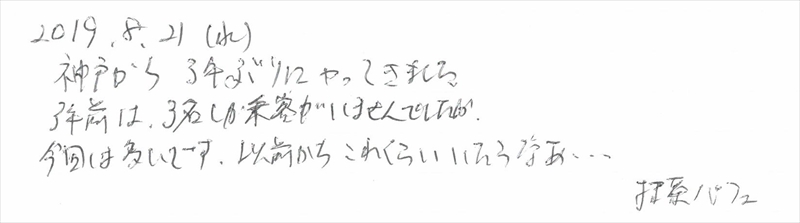 2019.8.21(水)
神戸から 3年ぶりにやってきました
3年前は、3名しか乗客がいませんでしたが、
今回は多いです。以前からこれくらいいたらなあ...
抹茶パフェ